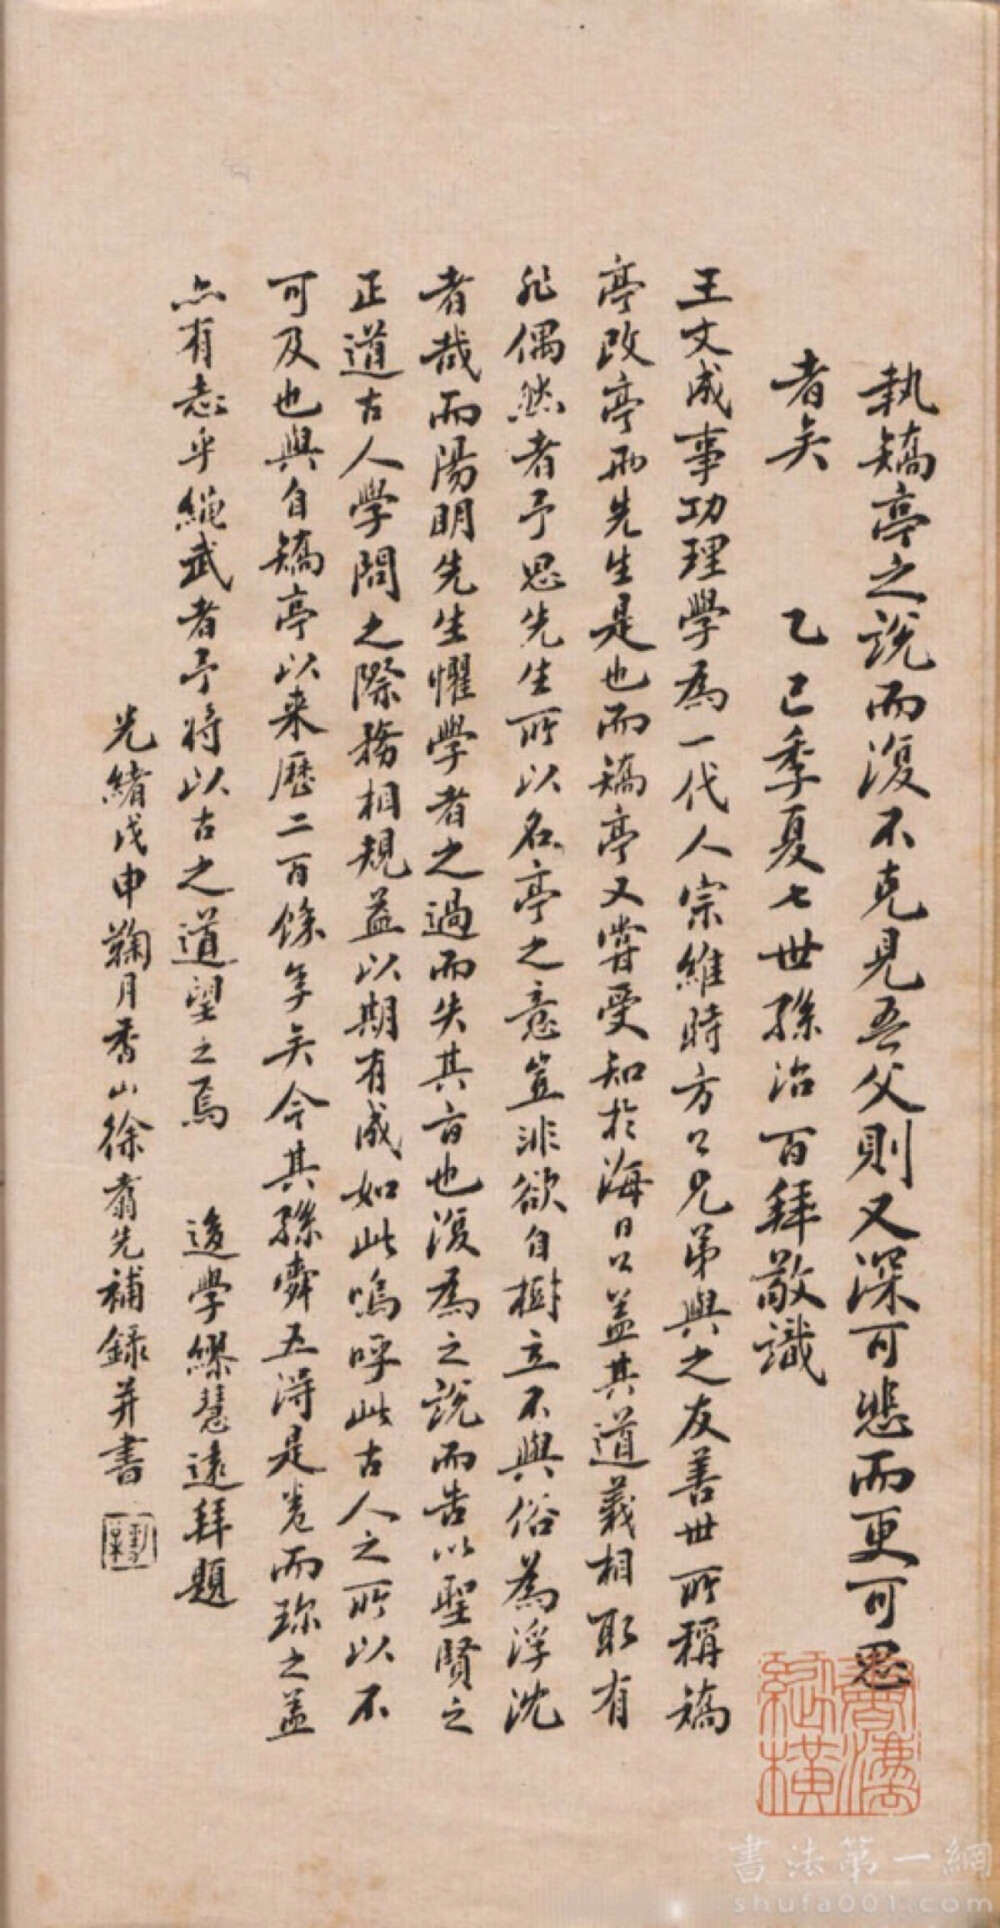 執矯亭之說而復不克見吾父則又深可悲而更可思
者矣　乙巳季夏七世孫治百拜敬識
王文成事功理學為一代人宗維時方公兄弟與之友善世所稱矯
亭改亭兩先生是也而矯亭又嘗受知於海日公蓋其道義相取有
非偶然者予思先生所以名亭之意豈非欲自樹立不與俗為浮沈
者哉而陽明先生懼學者之過而失其旨也復為之說而告以聖賢之
正道古人學問之際務相規益以期有成如此嗚呼此古人之所以不
可及也與自矯亭以来歷二百餘年矣今其孫舜五得是卷而珎之蓋
亦有志乎繩武者予将以古之道望之焉　後學繆慧遠拜題
光緒戊申鞠月香山徐翕先補錄并書
書法第一網
shufa001.com